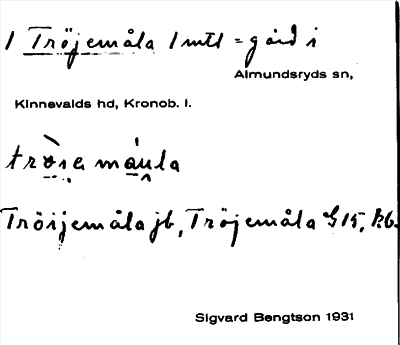 1 Tröjemåla 1 mtl = gård i
Almundsryds sn,
Kinnevalds hd, Kronob. l.
måula
Tröijemåla jb, Tröjemåla G 15, kb.
Sigvard Bengtson 1931